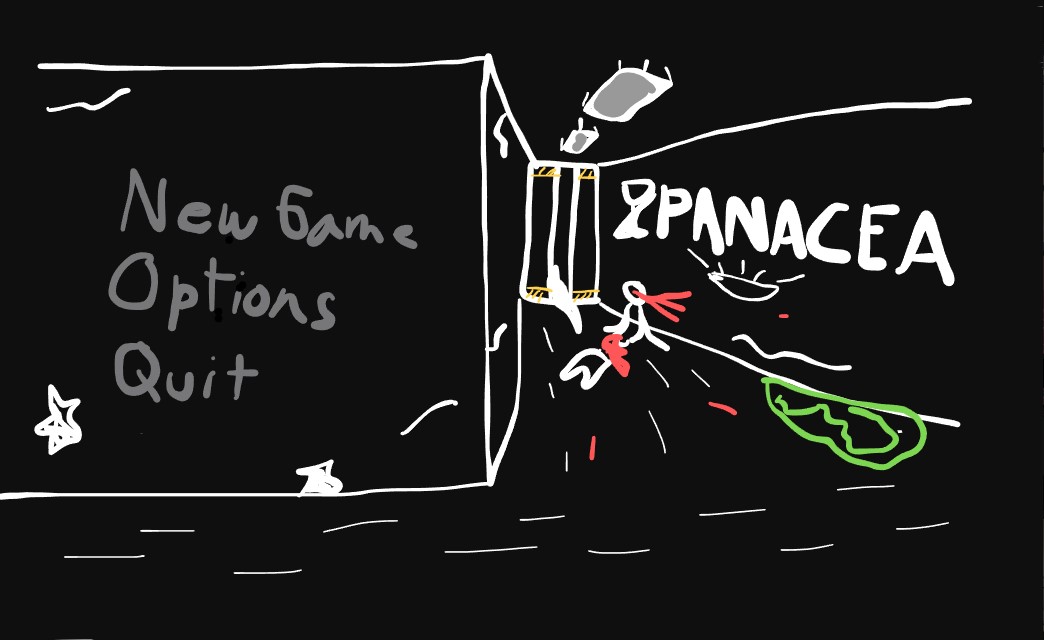 New Game
Options
Quit
PANACEA